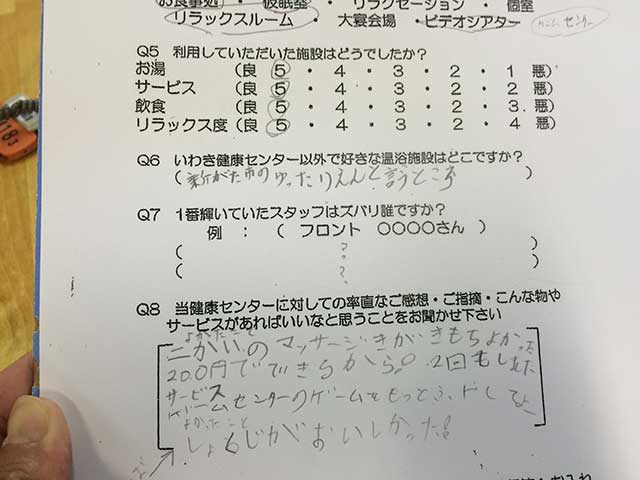 お食事処・仮眠室・リラクゼーション・個室
リラックスルーム・大宴会場・ビデオシアター ゲームセンター
Q5 利用していただいた施設はどうでしたか?
お湯 (良 5・4・3・2・1 悪)
サービス (良 5・4・3・2・2 悪)
飲食 (良 5・4・3・2・3 悪)
リラックス度 (良 5・4・3・2・4 悪)
Q6 いわき健康センター以外で好きな温浴施設はどこですか?
(新がた市のゆったりえんと言うところ)
Q7 1番輝いていたスタッフはズバリ誰ですか?
例 : ( フロント ○○○○さん )
( ? )
( ? )
Q8 当健康センターに対しての率直なご感想・ご指摘・こんな物や
サービスがあればいいなと思うことをお聞かせ下さい
よかったこと
二かいのマッサージきがきもちよかった
200円でできるから。2回もしました
サービス
ゲームセンターのゲームをもっと
よかったこと
しょくじがおいしかった!
183